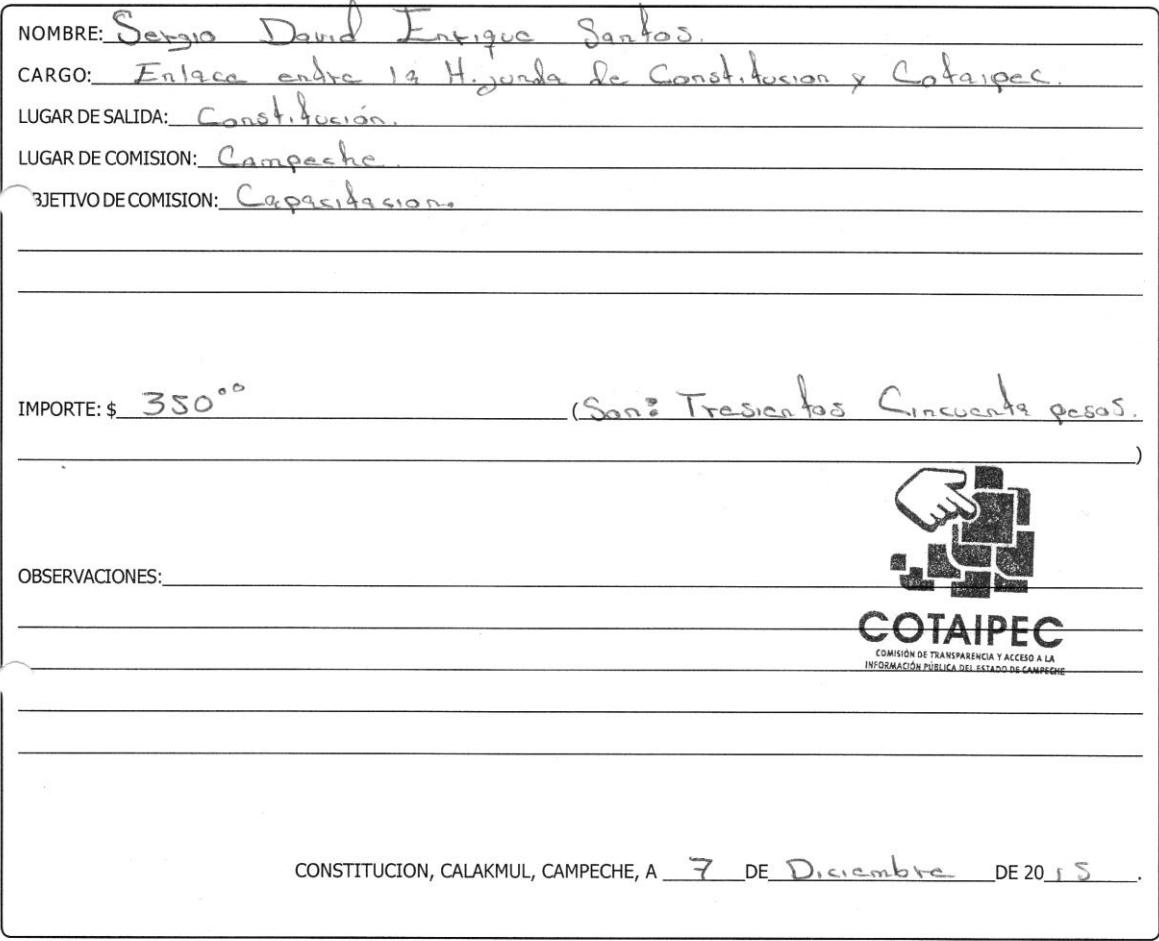 NOMBRE: Sergio David Enrique Santos.
CARGO: Enlace entre la H. junta de Constitucion y Cotaipec.
LUGAR DE SALIDA: Constitución.
LUGAR DE COMISION: Campeche.
BJETIVO DE COMISION: Capasitasion.
IMPORTE: $ 350.°° (Son: Tresientos Cincuenta pesos.
)
OBSERVACIONES:
COTAIPEC
COMISIÓN DE TRANSPARENCIA Y ACCESO A LA
INFORMACIÓN PÚBLICA DEL ESTADO DE CAMPECHE
CONSTITUCION, CALAKMUL, CAMPECHE, A 7 DE Diciembre DE 2015.